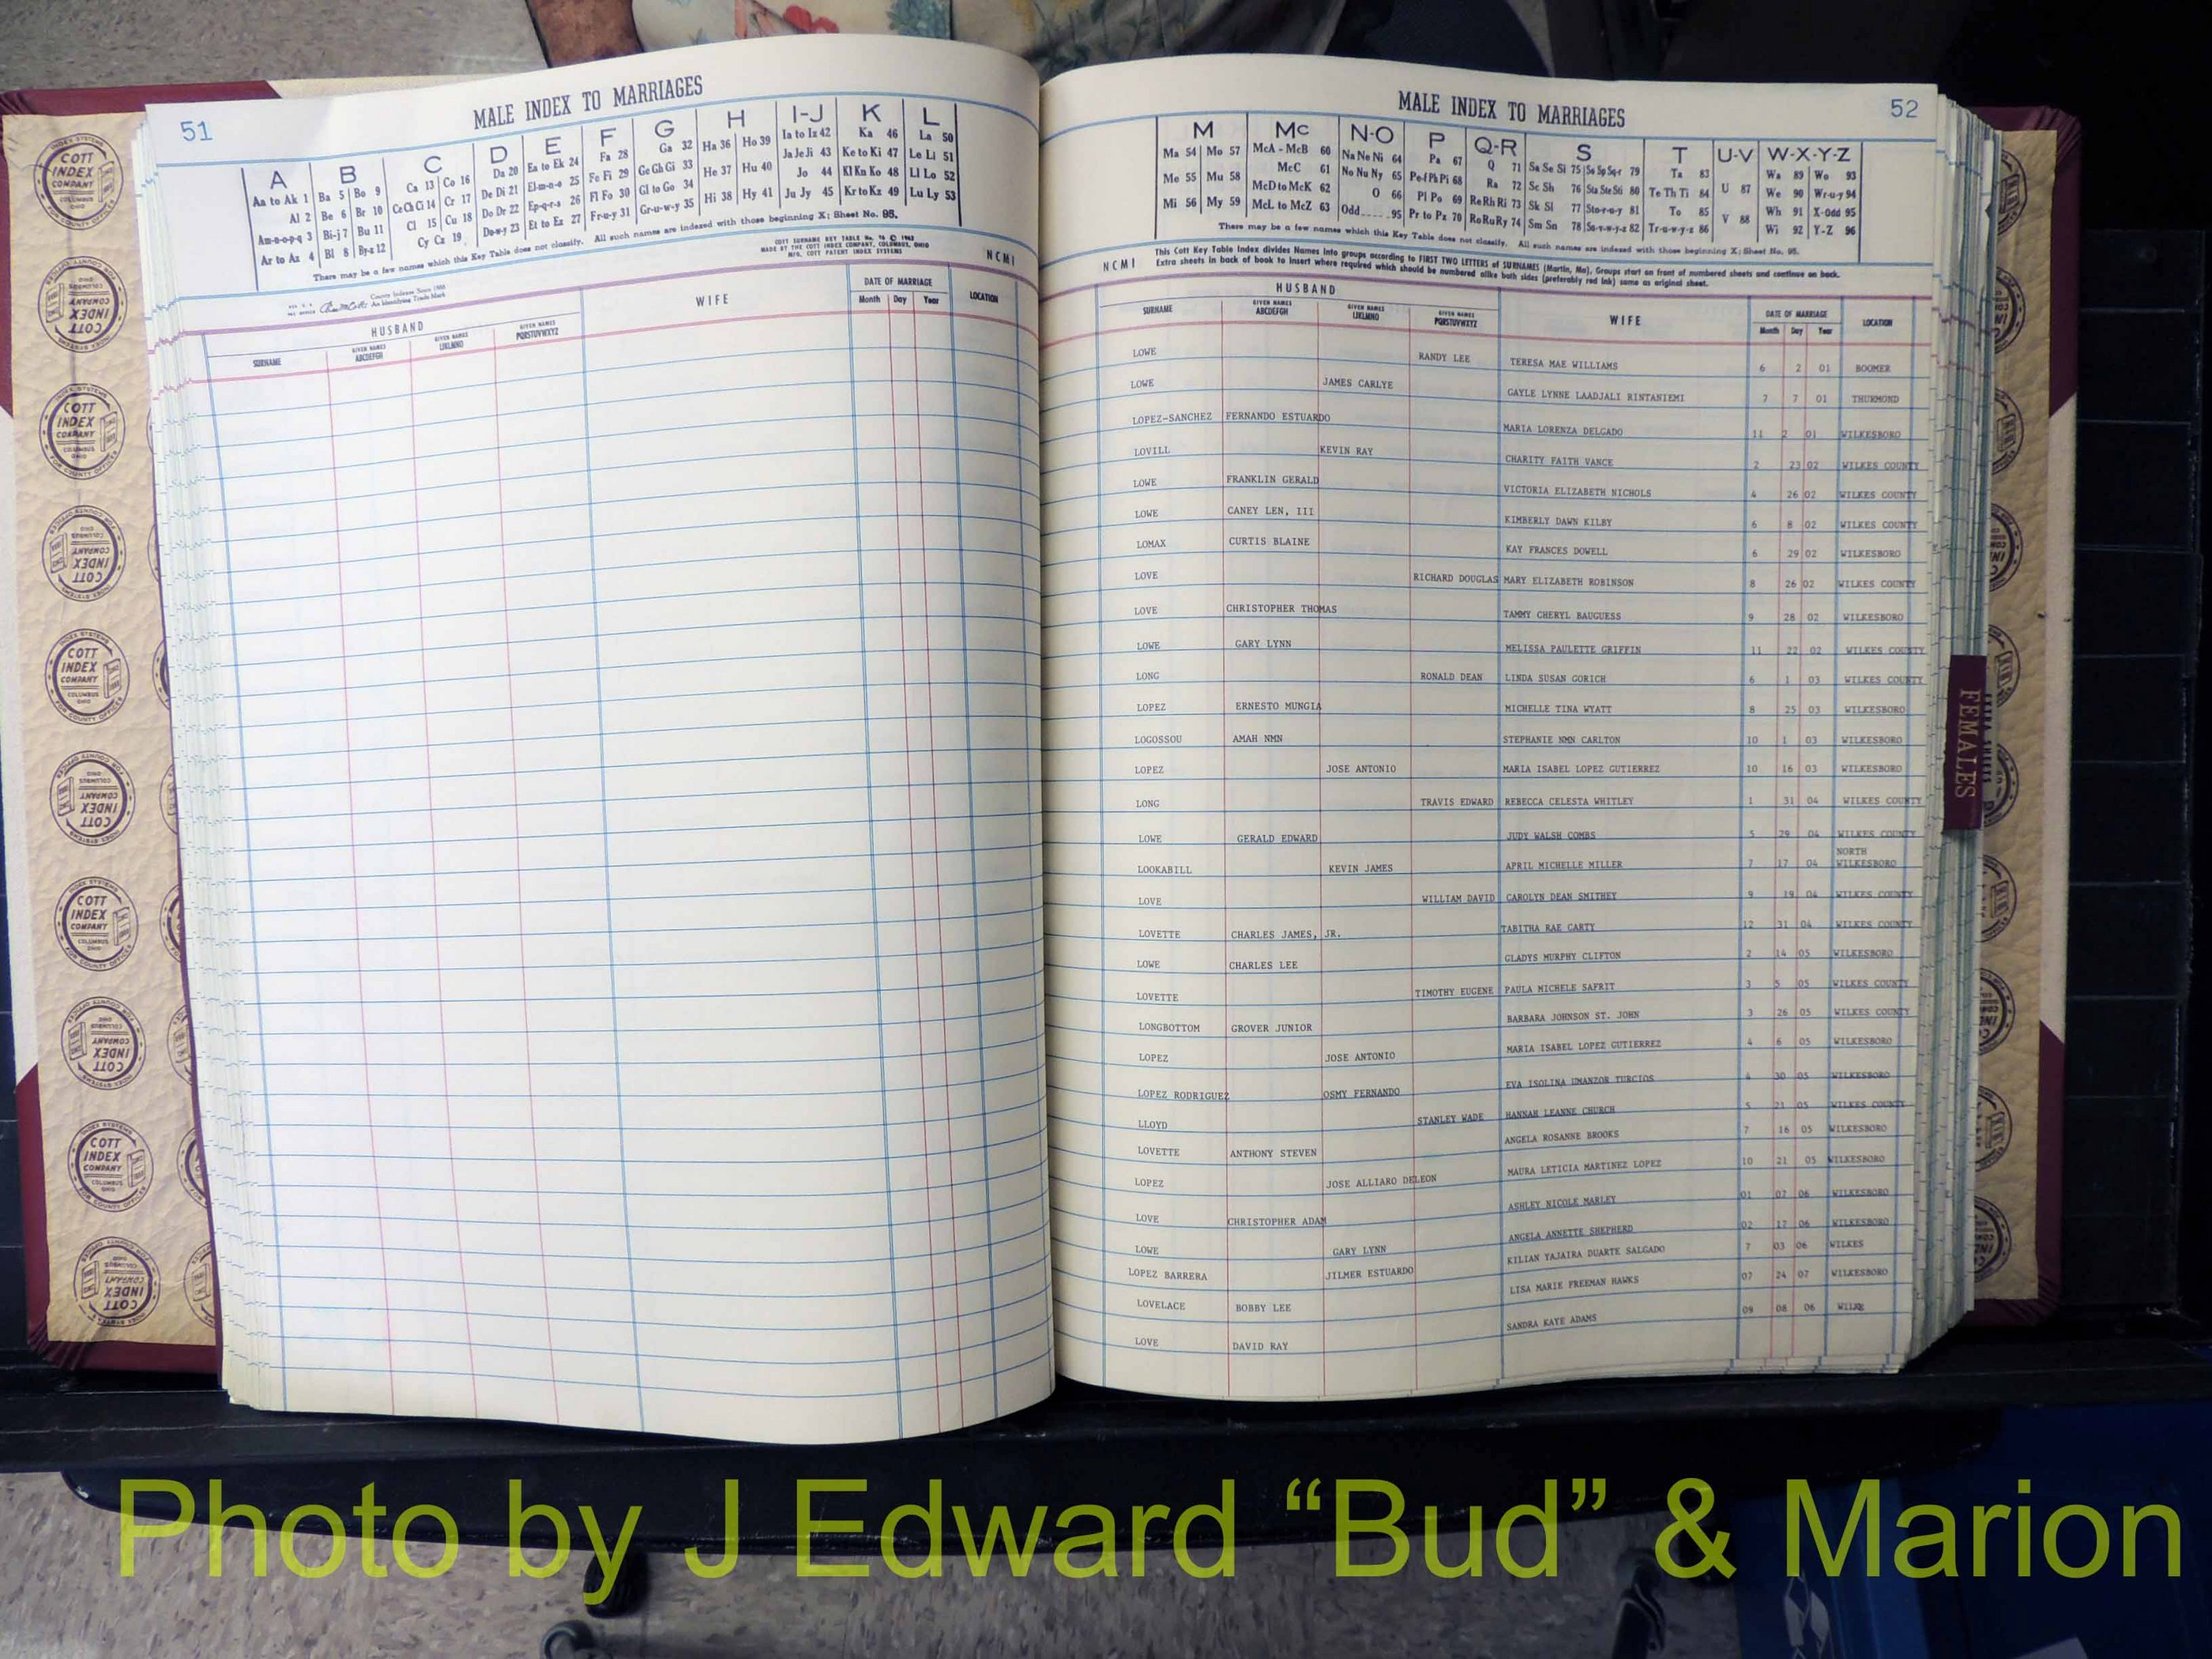 51
MALE INDEX TO MARRIAGES
A B C D E F G H I-J K L
Aa to Ak 1 Ba 5 Bo 9 Ca 13 Co 16 Da 20 Ea to Ek 24 Fa 28 Ga 32 Ha 36 Ho 39 Ia to Iz 42 Ka 46 La 50
Al 2 Be 6 Br 10 Ce Ch Ci 14 Cr 17 De Di 21 El-m-n-o 25 Fe Fi 29 Ge Gh Gi 33 He 37 Hu 40 Ja Je Ji 43 Ke to Ki 47 Le Li 51
Am-n-o-p-q 3 Bi-j 7 Bu 11 Cl 15 Cu 18 Do Dr 22 Ep-q-r-s 26 Fl Fo 30 Gl to Go 34 Hi 38 Hy 41 Jo 44 Kl Kn Ko 48 Ll Lo 52
Ar to Az 4 Bl 8 By-z 12 Cy Cz 19 Du-w-y 23 Et to Ez 27 Fr-u-y 31 Gr-u-w-y 35 Ju Jy 45 Kr to Kz 49 Lu Ly 53
There may be a few names which this Key Table does not classify. All such names are indexed with those beginning X; Sheet No. 95.
MADE BY THE COTT INDEX COMPANY, COLUMBUS, OHIO
MFG. COTT PATENT INDEX SYSTEMS
NCMI
County Indexes Since 1888
An Identifying Trade Mark
HUSBAND WIFE DATE OF MARRIAGE LOCATION
SURNAME GIVEN NAMES ABCDEFGH GIVEN NAMES IJKLMNO GIVEN NAMES PQRSTUVWXYZ Month Day Year
MALE INDEX TO MARRIAGES
52
M Mc N-O P Q-R S T U-V W-X-Y-Z
Ma 54 Mo 57 McA - McB 60 Na Ne Ni 64 Pa 67 Q 71 Sa Se Si 75 So Sp Sq-r 79 Ta 83 Wa 89 Wo 93
Me 55 Mu 58 McC 61 No Nu Ny 65 Pe-f Ph Pi 68 Ra 72 Sc Sh 76 Sta Ste Sti 80 Te Th Ti 84 U 87 We 90 Wr-u-y 94
Mi 56 My 59 McD to McK 62 O 66 Pl Po 69 Re Rh Ri 73 Sk Sl 77 Sto-r-u-y 81 To 85 V 88 Wh 91 X-Odd 95
McL to McZ 63 Odd 95 Pr to Pz 70 Ro Ru Ry 74 Sm Sn 78 Su-v-w-y-z 82 Tr-u-w-y-z 86 Wi 92 Y-Z 96
There may be a few names which this Key Table does not classify. All such names are indexed with those beginning X; Sheet No. 95.
NCMI
This Cott Key Table Index divides Names into groups according to FIRST TWO LETTERS of SURNAMES (Martin, Ma), Groups start on front of numbered sheets and continue on back.
Extra sheets in back of book to insert where required which should be numbered alike both sides (preferably red ink) same as original sheet.
HUSBAND WIFE DATE OF MARRIAGE LOCATION
SURNAME GIVEN NAMES ABCDEFGH GIVEN NAMES IJKLMNO GIVEN NAMES PQRSTUVWXYZ Month Day Year
LOWE RANDY LEE TERESA MAE WILLIAMS 6 2 01 BOOMER
LOWE JAMES CARLYE GAYLE LYNNE LAADJALI RINTANIEMI 7 7 01 THURMOND
LOPEZ-SANCHEZ FERNANDO ESTUARDO MARIA LORENZA DELGADO 11 2 01 WILKESBORO
LOVILL KEVIN RAY CHARITY FAITH VANCE 2 23 02 WILKES COUNTY
LOWE FRANKLIN GERALD VICTORIA ELIZABETH NICHOLS 4 26 02 WILKES COUNTY
LOWE CANEY LEN, III KIMBERLY DAWN KILBY 6 8 02 WILKES COUNTY
LOMAX CURTIS BLAINE KAY FRANCES DOWELL 6 29 02 WILKESBORO
LOVE RICHARD DOUGLAS MARY ELIZABETH ROBINSON 8 26 02 WILKES COUNTY
LOVE CHRISTOPHER THOMAS TAMMY CHERYL BAUGUESS 9 28 02 WILKESBORO
LOWE GARY LYNN MELISSA PAULETTE GRIFFIN 11 22 02 WILKES COUNTY
LONG RONALD DEAN LINDA SUSAN GORICH 6 1 03 WILKES COUNTY
LOPEZ ERNESTO MUNGIA MICHELLE TINA WYATT 8 25 03 WILKESBORO
LOGOSSOU AMAH NMN STEPHANIE NMN CARLTON 10 1 03 WILKESBORO
LOPEZ JOSE ANTONIO MARIA ISABEL LOPEZ GUTIERREZ 10 16 03 WILKESBORO
LONG TRAVIS EDWARD REBECCA CELESTA WHITLEY 1 31 04 WILKES COUNTY
LOWE GERALD EDWARD JUDY WALSH COMBS 5 29 04 WILKES COUNTY
LOOKABILL KEVIN JAMES APRIL MICHELLE MILLER 7 17 04 NORTH WILKESBORO
LOVE WILLIAM DAVID CAROLYN DEAN SMITHEY 9 19 04 WILKES COUNTY
LOVETTE CHARLES JAMES, JR. TABITHA RAE CARTY 12 31 04 WILKES COUNTY
LOWE CHARLES LEE GLADYS MURPHY CLIFTON 2 14 05 WILKESBORO
LOVETTE TIMOTHY EUGENE PAULA MICHELE SAFRIT 3 5 05 WILKES COUNTY
LONGBOTTOM GROVER JUNIOR BARBARA JOHNSON ST. JOHN 3 26 05 WILKES COUNTY
LOPEZ JOSE ANTONIO MARIA ISABEL LOPEZ GUTIERREZ 4 6 05 WILKESBORO
LOPEZ RODRIGUEZ OSMY FERNANDO EVA ISOLINA UMANZOR TURCIOS 4 30 05 WILKESBORO
LLOYD STANLEY WADE HANNAH LEANNE CHURCH 5 21 05 WILKES COUNTY
LOVETTE ANTHONY STEVEN ANGELA ROSANNE BROOKS 7 16 05 WILKESBORO
LOPEZ JOSE ALLIARO DELEON MAURA LETICIA MARTINEZ LOPEZ 10 21 05 WILKESBORO
LOVE CHRISTOPHER ADAM ASHLEY NICOLE MARLEY 01 07 06 WILKESBORO
LOWE GARY LYNN ANGELA ANNETTE SHEPHERD 02 17 06 WILKESBORO
LOPEZ BARRERA JILMER ESTUARDO KILIAN YAJAIRA DUARTE SALGADO 7 03 06 WILKES
LOVELACE BOBBY LEE LISA MARIE FREEMAN HAWKS 07 24 07 WILKESBORO
LOVE DAVID RAY SANDRA KAYE ADAMS 09 08 06
FEMALES
COTT INDEX COMPANY
COLUMBUS OHIO
INDEX SYSTEMS
FOR COUNTY OFFICES
Photo by J Edward “Bud” & Marion